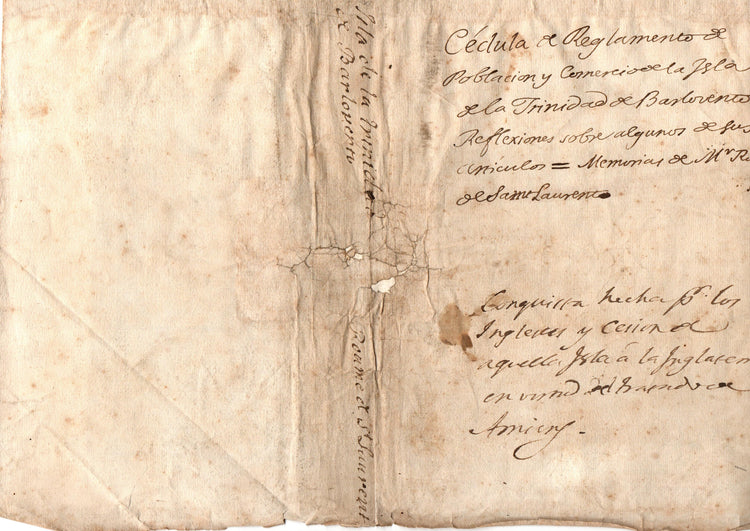 Isla de la Trinidad
de Barlovento
Roume de St Laurent
Cédula de Reglamento de
Poblacion y Comercio de la Isla
de la Trinidad de Barlovento
Reflexiones sobre algunos de sus
articulos = Memorias de Mr. R
de Saint Laurent
Conquista hecha pr. los
Ingleses y Cesion de
aquella Isla á la Inglater
en virtud del tratado de
Amiens.